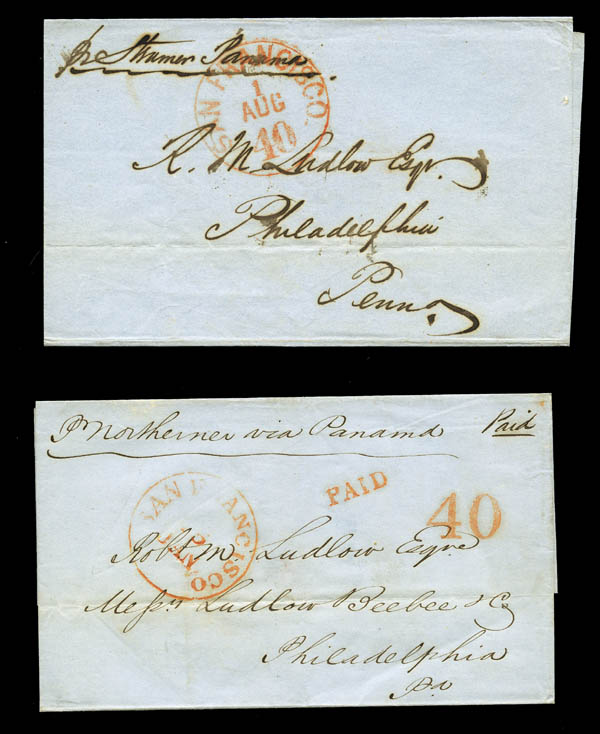 pr Steamer Panama
SAN FRANCISCO.
1
AUG
40
R. M Ludlow Esqr.
Philadelphia
Penna
Pr Northerner via Panama Paid
PAID
40
SAN FRANCISCO
JAN
Robt. M. Ludlow Esqre
Messrs Ludlow Beebee & Co
Philadelphia
Pa